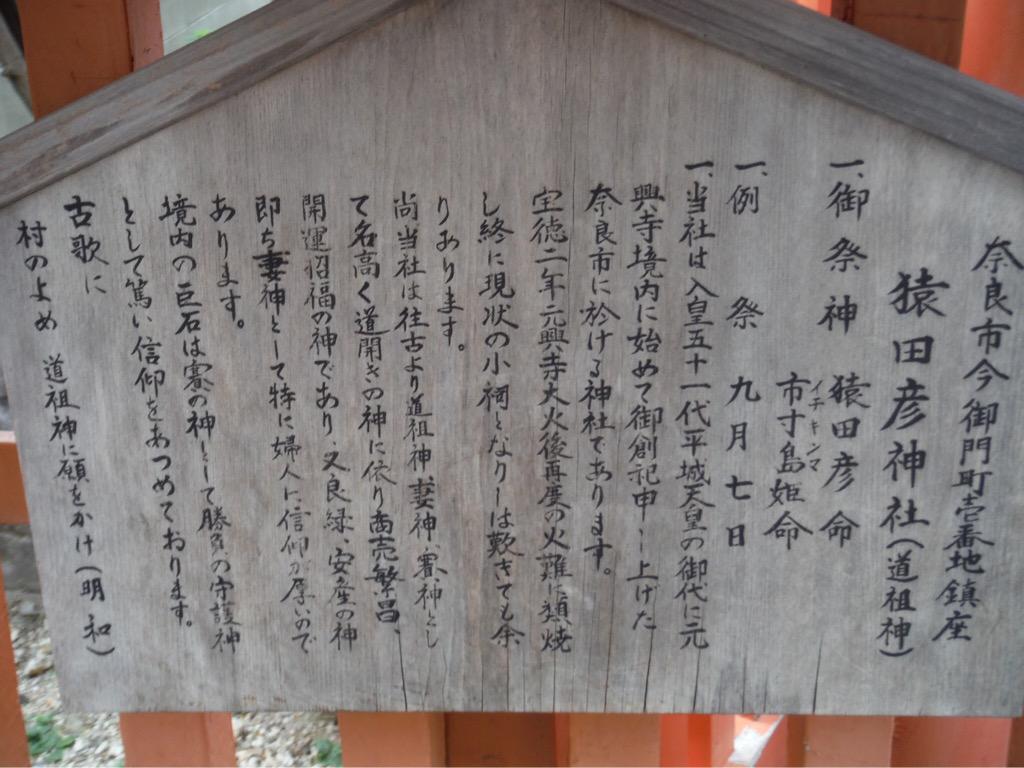 奈良市今御門町壱番地鎮座
猿田彦神社(道祖神)
一、御祭神 猿田彦命
市寸島姫命
イチキシマ
一、例祭 九月七日
一、当社は入皇五十一代平城天皇の御代に元
興寺境内に始めて御創祀申し上げた
奈良市に於ける神社であります。
宝徳二年元興寺大火後再度の火難に類焼
し終に現状の小祠となりしは歎きても余
りあります。
尚当社は往古より道祖神妻神、賽神とし
て名高く道開きの神に依り商売繁昌、
開運招福の神であり、又良縁、安産の神
即ち妻神として特に婦人に信仰が厚いので
あります。
境内の巨石は賽の神として勝負の守護神
として篤い信仰をあつめております。
古歌に
村のよめ 道祖神に願をかけ(明和)